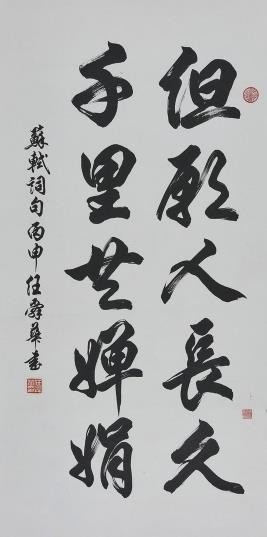 但願人長久
千里共嬋娟
蘇軾詞句丙申任舜華書